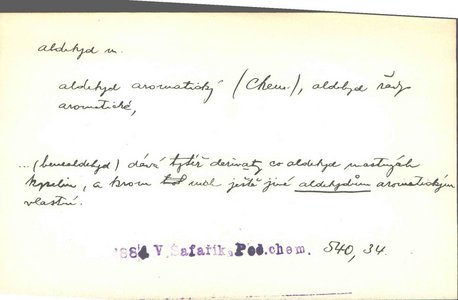 aldehyd m.
aldehyd aromatický (Chem.), aldehyd řady
aromatické,
...(benzaldehyd) dává tytéž derivaty co aldehyd mastných
kyselin, a krom nich ještě jiné aldehydům aromatickým
vlastné.
1884 V. Šafařík, Poč.chem. 540, 34.